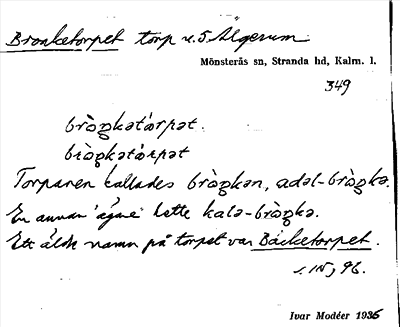 Bronketorpet torp u. 5 Älgerum.
Mönsterås sn, Stranda hd, Kalm. l.
349
bròŋkətơrpət.
bròŋkətơrpət
Torparen kallades bròŋkən, adəl-bròŋkə.
En annan 'ägare' hette kalə-bròŋkə.
Ett äldre namn på torpet var Bäcketorpet.
s. 96.
Ivar Modéer 1936